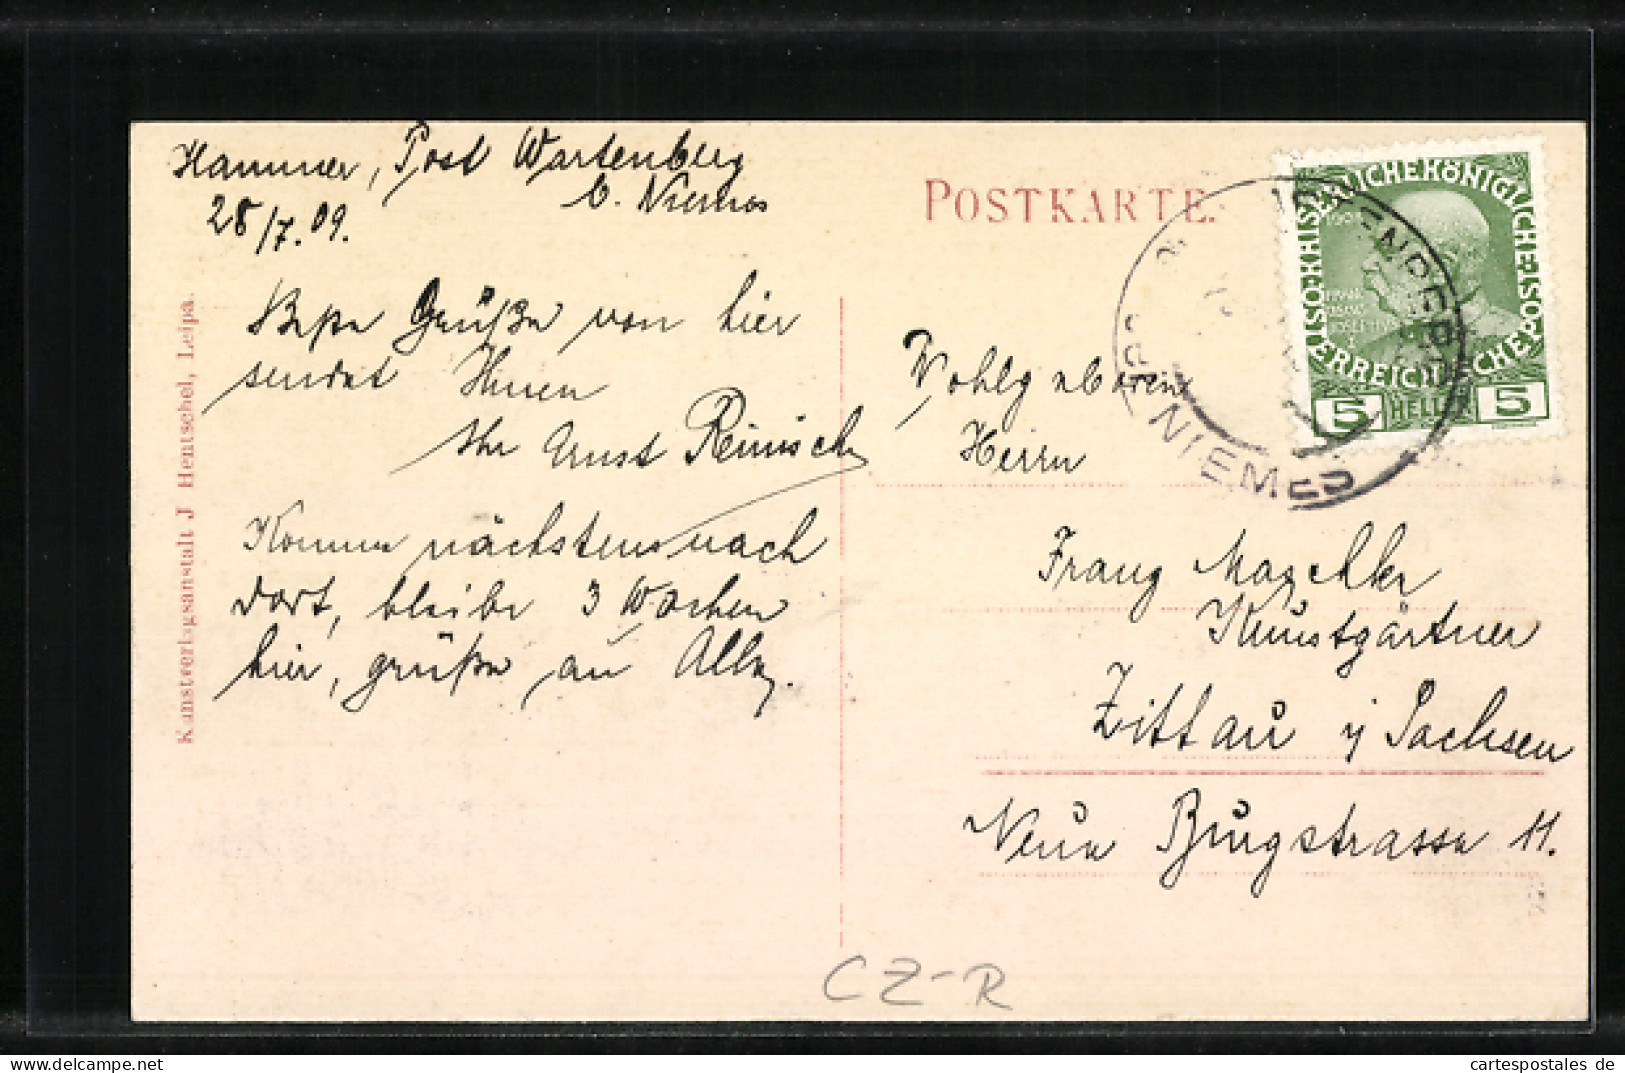 Hammer, Post Wartenberg
b. Niemes
28/7. 09.
Beste Grüße von hier
sendet Ihnen
Ihr Ernst Reinisch
Komme nächstens nach
dort, bleibe 3 Wochen
hier, grüße an Alle.
Kunstverlagsanstalt J Hentschel, Leipa.
POSTKARTE.
KAISERLICHEKÖNIGLICHE
ÖSTERREICHISCHEPOST
5 HELLER 5
NIEMES
Wohlgeboren
Herrn
Franz Maschke
Kunstgärtner
Zittau i/ Sachsen
Neue Burgstrasse 11.
CZ-R
cartespostales de